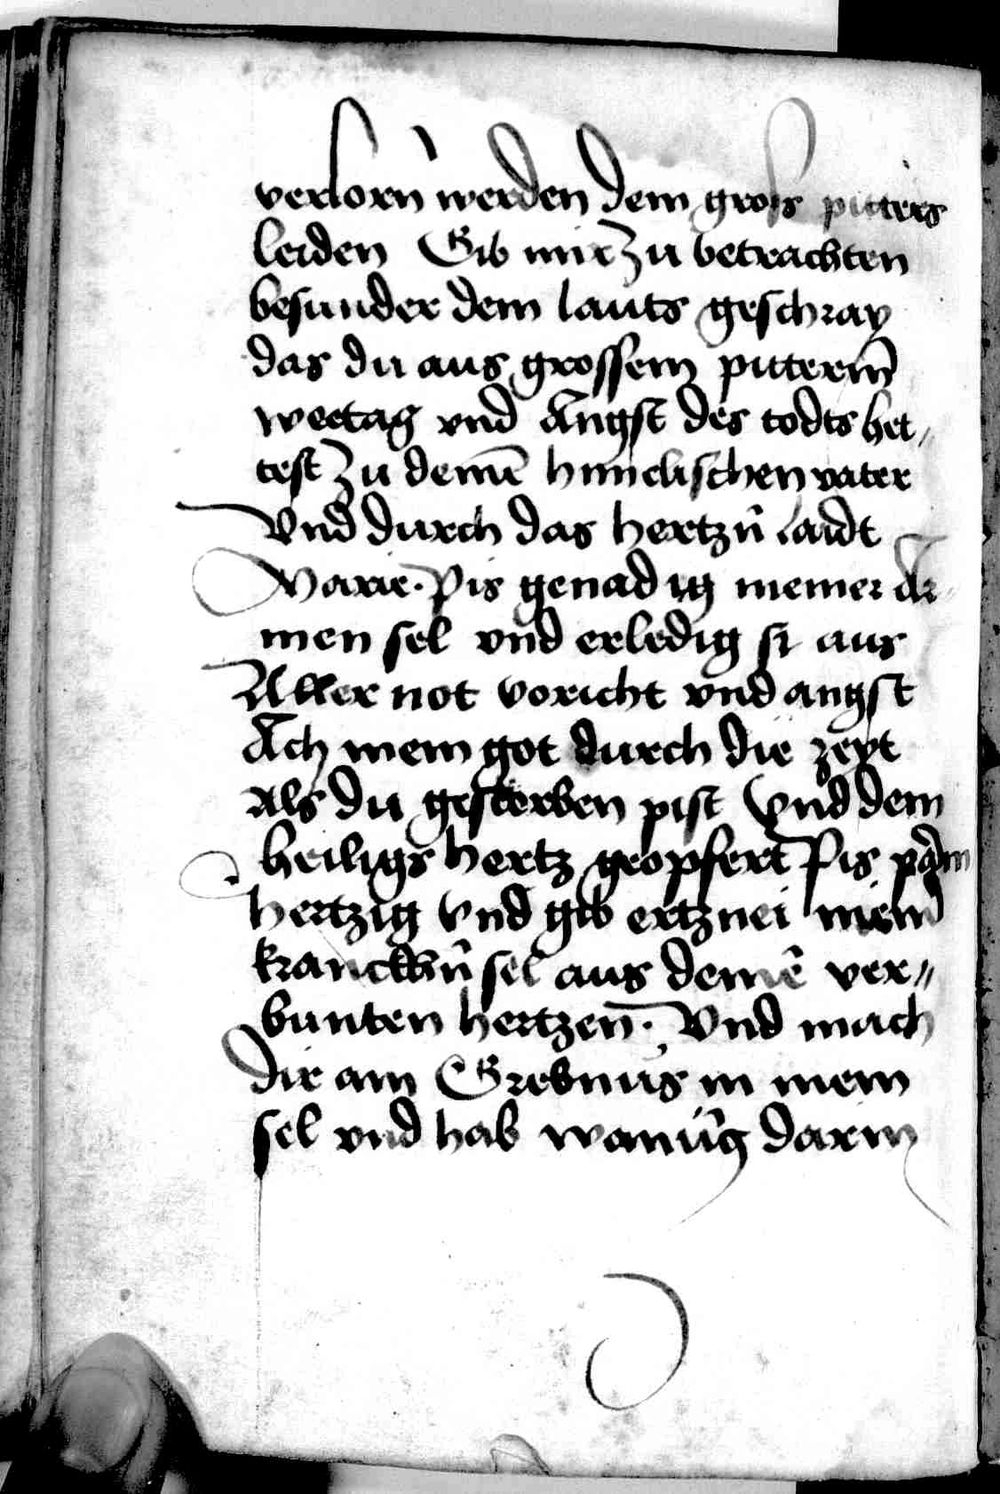 verlorn werden dein groß pitters
leiden Gib mir zu betrachten
besunder dein lauts geschray
das du aus grossem pitterm̄
wetag vnd Angst des todts het„
test zu deinē himelischen vater
Vnd durch das hertzn̄ laidt
Marie. Pis genadig meiner Ar„
men sel vnd erledig si aus
Aller not voricht vnd angst
Ach mein got durch die zeyt
Als du gestorben pist Vnd dein
heiligs hertz geopfert Pis parm
hertzig Vnd gib ertznei meinr̄
kranckhn̄ sel aus deinē ver„
bunten hertzen. Vnd mach
dir ain Grebnus in mein
sel vnd hab wanūg darin